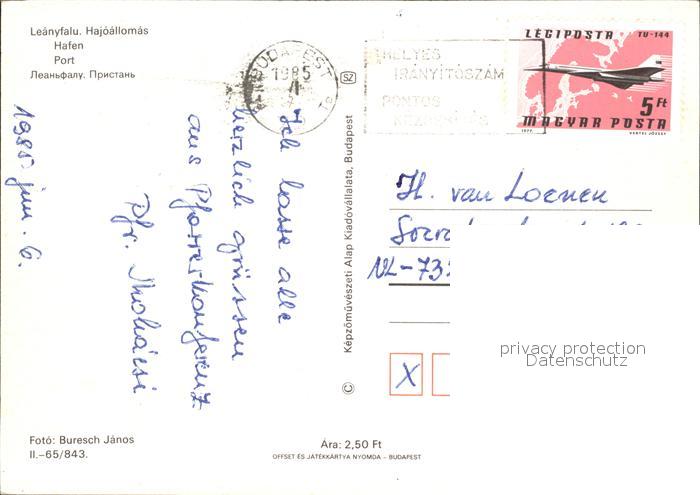 Leányfalu. Hajóállomás
Hafen
Port
Леаньфалу. Пристань
BUDAPEST
1985
HELYES
IRÁNYÍTÓSZÁM
PONTOS
LÉGIPOSTA TU-144
5 Ft
MAGYAR POSTA
1977. VERTEL JÓZSEF
SZ
Ich lasse alle
herzlich grüssen
aus Pfarrerkonferenz
Pfr.
1985 jún. 6.
Képzőművészeti Alap Kiadóvállalata, Budapest
©
H. van Loenen
NL-73
X
privacy protection
Datenschutz
Fotó: Buresch János
II.–65/843.
Ára: 2,50 Ft
OFFSET ÉS JÁTÉKKÁRTYA NYOMDA – BUDAPEST